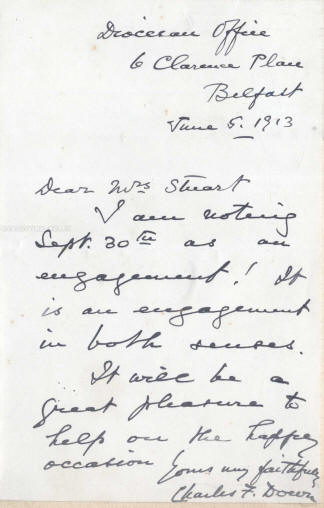 Diocesan Office
6 Clarence Place
Belfast
June 5. 1913
Dear Mrs Stuart
I am noting
Sept. 30th as an
engagement! It
is an engagement
in both senses.
It will be a
great pleasure to
help on the happy
occasion Yours very faithfully
Charles F. Down